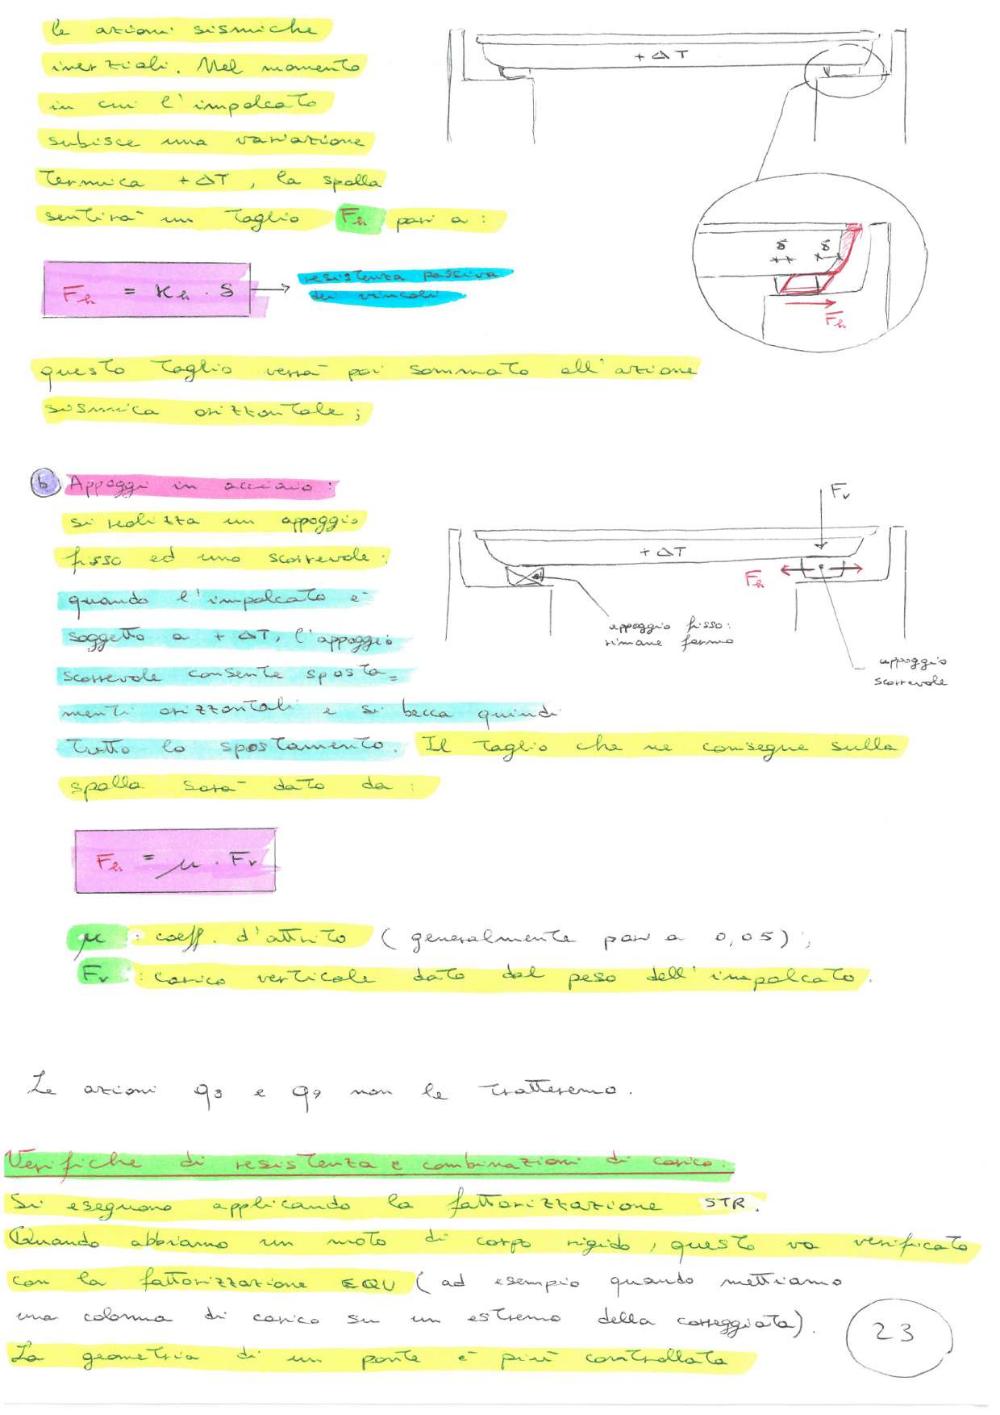 le azioni sismiche
inerziali. Nel momento
in cui l'impalcato
subisce una variazione
termica +ΔT, la spalla
sentirà un taglio Fh pari a:
+ΔT
δ δ
Fh
Fh = Kh · δ → resistenza passiva
dei vincoli
questo taglio verrà poi sommato all'azione
sismica orizzontale;
b Appoggi in acciaio:
si realizza un appoggio
fisso ed uno scorrevole:
quando l'impalcato è
soggetto a +ΔT, l'appoggio
scorrevole consente sposta=
menti orizzontali e si becca quindi
tutto lo spostamento. Il taglio che ne consegue sulla
spalla sarà dato da:
Fv
+ΔT
Fh
appoggio fisso:
rimane fermo
appoggio
scorrevole
Fh = μ · Fv
μ : coeff. d'attrito (generalmente pari a 0,05);
Fv : carico verticale dato dal peso dell'impalcato.
Le azioni q8 e q9 non le tratteremo.
Verifiche di resistenza e combinazioni di carico:
Si eseguono applicando la fattorizzazione STR.
Quando abbiamo un moto di corpo rigido, questo va verificato
con la fattorizzazione EQU (ad esempio quando mettiamo
una colonna di carico su un estremo della carreggiata).
La geometria di un ponte è più controllata
23